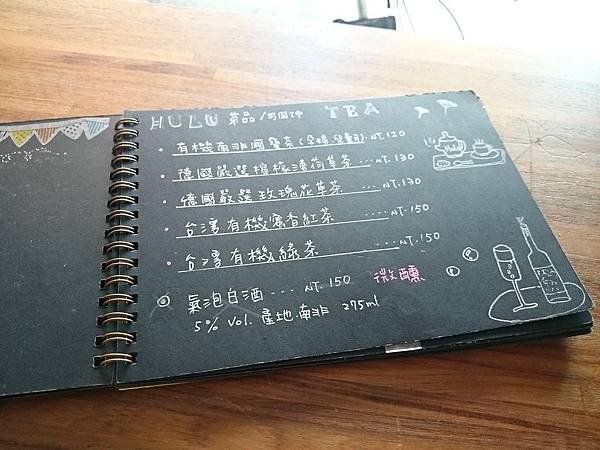 HULU 茶品 /可回沖 TEA
有機南非國寶茶(孕婦.兒童可) NT.120
德國嚴選檸檬薄荷草茶 ... NT.130
德國嚴選玫瑰花草茶 ... NT.130
台灣有機蜜香紅茶 .... NT.150
台灣有機綠茶 .... NT.150
氣泡白酒 ... NT.150 微醺
5% Vol. 產地.南非 275ml